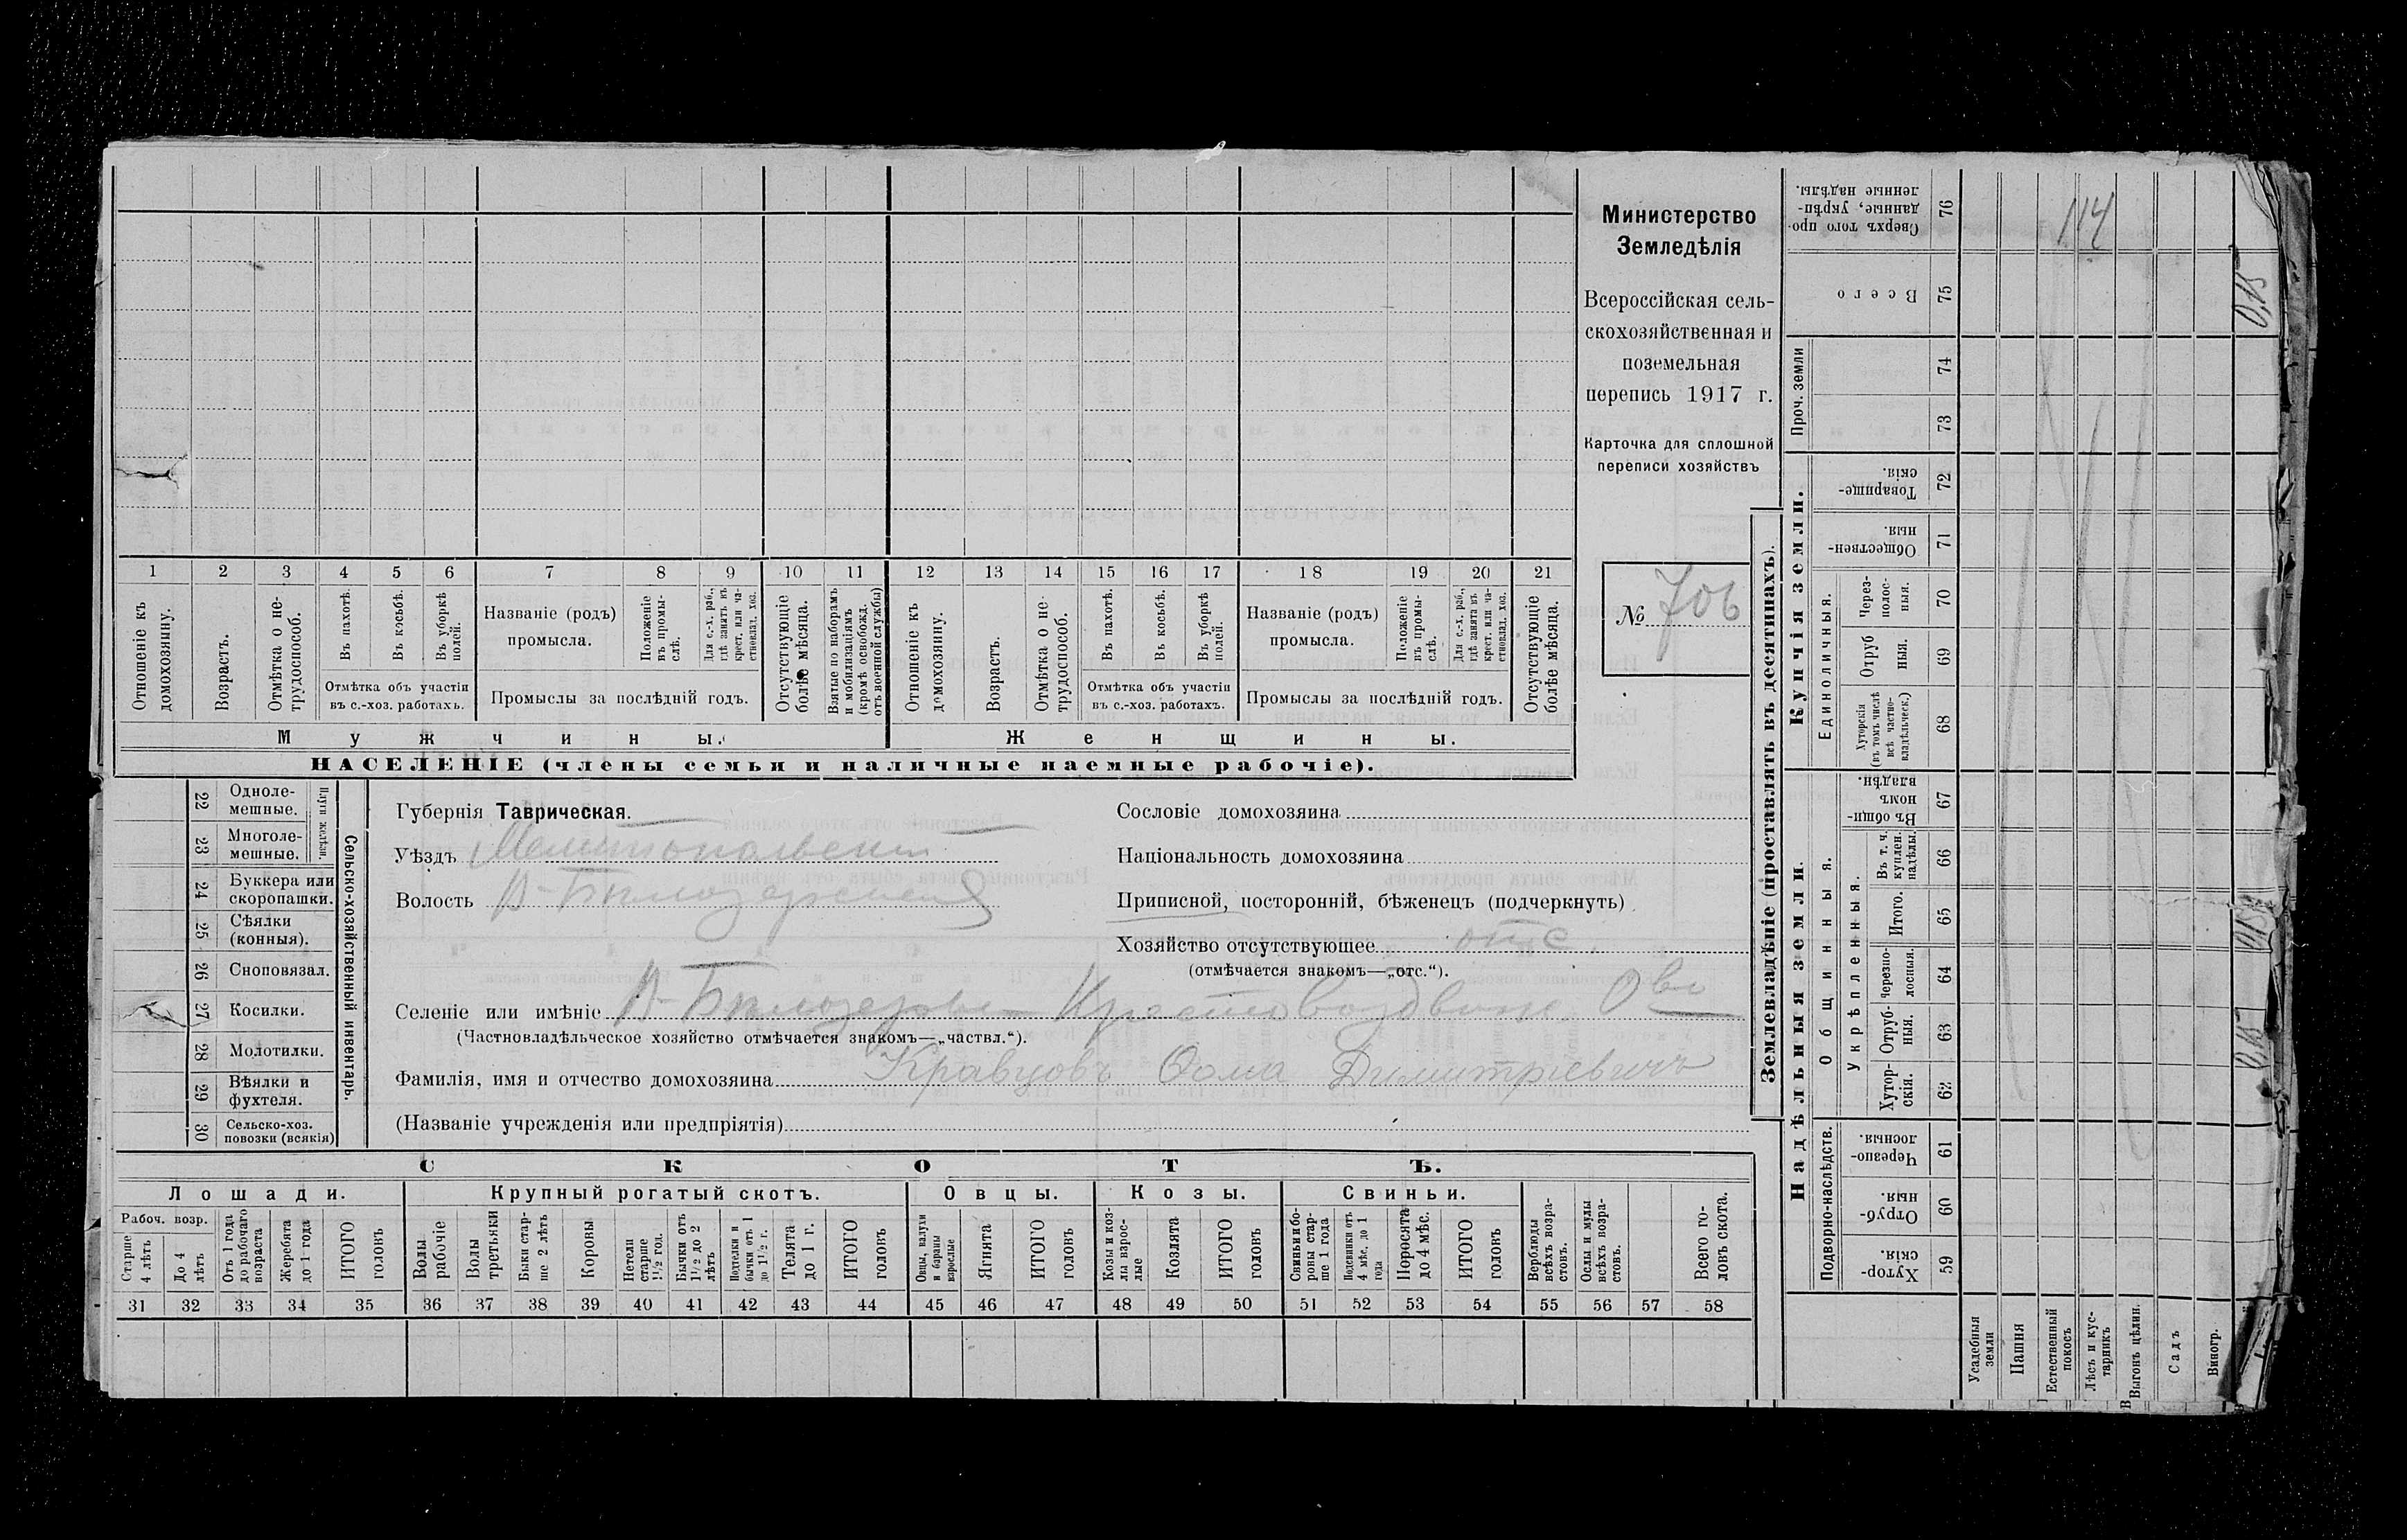 Министерство
Земледѣлія
Всероссійская сель-
скохозяйственная и
поземельная
перепись 1917 г.
Карточка для сплошной
переписи хозяйствъ
№ 706
1 2 3 4 5 6 7 8 9 10 11 12 13 14 15 16 17 18 19 20 21
Отношеніе къ
домохозяину.
Возрастъ.
Отмѣтка о не-
трудоспособ.
Въ пахотѣ.
Въ косьбѣ.
Въ уборкѣ
полей.
Отмѣтка объ участіи
въ с.-хоз. работахъ.
Названіе (родъ)
промысла.
Положеніе
въ промы-
слѣ.
Для с.-х. раб.,
гдѣ занятъ въ
крест. или ча-
стновлад. хоз.
Промыслы за послѣдній годъ.
Отсутствующіе
болѣе мѣсяца.
Взятые по наборамъ
и мобилизаціямъ
(кромѣ освобожд.
отъ военной службы)
Отношеніе къ
домохозяину.
Возрастъ.
Отмѣтка о не-
трудоспособ.
Въ пахотѣ.
Въ косьбѣ.
Въ уборкѣ
полей.
Отмѣтка объ участіи
въ с.-хоз. работахъ.
Названіе (родъ)
промысла.
Положеніе
въ промы-
слѣ.
Для с.-х. раб.,
гдѣ занятъ въ
крест. или ча-
стновлад. хоз.
Промыслы за послѣдній годъ.
Отсутствующіе
болѣе мѣсяца.
Мужчины.
Женщины.
НАСЕЛЕНІЕ (члены семьи и наличные наемные рабочіе).
22 Одноле-
мешные.
23 Многоле-
мешные.
Плуги желѣзн.
24 Буккера или
скоропашки.
25 Сѣялки
(конныя).
26 Сноповязал.
27 Косилки.
28 Молотилки.
29 Вѣялки и
фухтеля.
30 Сельско-хоз.
повозки (всякія)
Сельско-хозяйственный инвентарь.
Губернія Таврическая.
Уѣздъ Мелитопольскій
Волость В-Бѣлозерская
Сословіе домохозяина
Національность домохозяина
Приписной, посторонній, бѣженецъ (подчеркнуть)
Хозяйство отсутствующее отс.
(отмѣчается знакомъ—„отс.“).
Селеніе или имѣніе В-Бѣлозерка Крестовоздвиж. Ова
(Частновладѣльческое хозяйство отмѣчается знакомъ—„частвл.“).
Фамилія, имя и отчество домохозяина Кравцовъ Ѳома Димитріевичъ
(Названіе учрежденія или предпріятія)
СКОТЪ.
Лошади.
Крупный рогатый скотъ.
Овцы.
Козы.
Свиньи.
Рабоч. возр.
Старше
4 лѣтъ
До 4
лѣтъ
Отъ 1 года
до рабочаго
возраста
Жеребята
до 1 года
ИТОГО
головъ
Волы
рабочіе
Волы
третьяки
Быки стар-
ше 2 лѣтъ
Коровы
Нетели
старше
1½ год.
Бычки отъ
1½ до 2
лѣтъ
Подтелки и
бычки отъ 1
до 1½ г.
Телята
до 1 г.
ИТОГО
головъ
Овцы, валухи
и бараны
взрослые
Ягнята
ИТОГО
головъ
Козы и коз-
лы взрос-
лые
Козлята
ИТОГО
головъ
Свиньи и бо-
ровы стар-
ше 1 года
Подсвинки отъ
4 мѣс. до 1
года
Поросята
до 4 мѣс.
ИТОГО
головъ
Верблюды
всѣхъ возра-
стовъ.
Ослы и мулы
всѣхъ возра-
стовъ.
Всего го-
ловъ скота.
31 32 33 34 35 36 37 38 39 40 41 42 43 44 45 46 47 48 49 50 51 52 53 54 55 56 57 58
Землевладѣніе (проставлять въ десятинахъ).
Надѣльныя земли.
Купчія земли.
Проч. земли
Подворно-наслѣдств.
Общинныя.
Укрѣпленныя.
Единоличныя.
Сверхъ того про-
данные, укрѣп-
ленные надѣлы.
76
114
Всего
75
0,15
74
73
Товарище-
скія.
72
Обществен-
ныя.
71
Через-
полос-
ныя.
70
Отруб
ныя.
69
Хуторскія
(въ томъ числѣ
всѣ частно-
владѣльческ.)
68
Въ общи-
номъ
владѣн.
67
Въ т. ч.
куплен.
надѣлы.
66
Итого.
65
0,15
Черезпо-
лосныя.
64
Отруб-
ныя.
63
0,15
Хутор-
скія.
62
Черезпо-
лосныя.
61
Отруб-
ныя.
60
Хутор-
скія.
59
Усадебныя
земли
Пашня
Естественный
покосъ
Лѣсъ и кус-
тарникъ
Выгонъ цѣлин.
Садъ
Виногр.